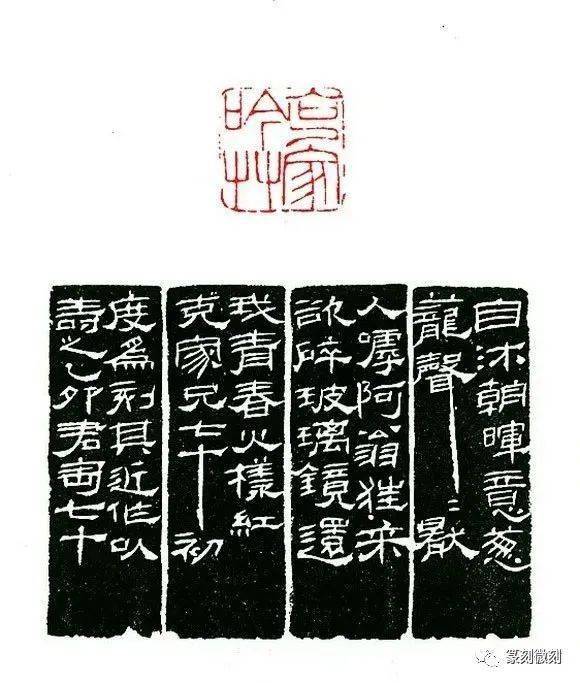 克家
吟艸
自沐朝暉意葱
蘢聲〻厭
人嘑阿翁狂来
欲碎玻璃鏡還
我青春火樣紅
克家兄七十初
度爲刻其近作以
壽之乙卯君匋七十
篆刻微刻